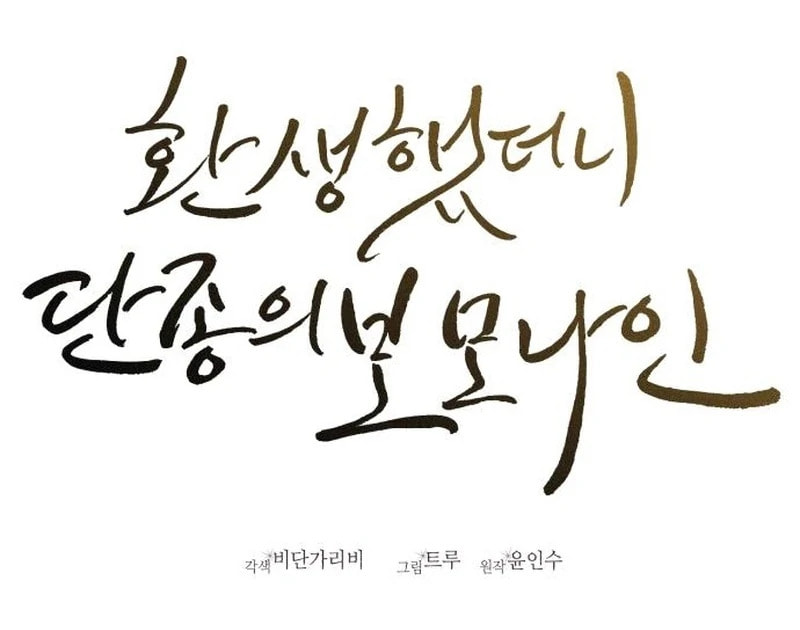 환생했더니
단종의 보모나인
각색 비단가리비 그림 트루 원작 윤인수